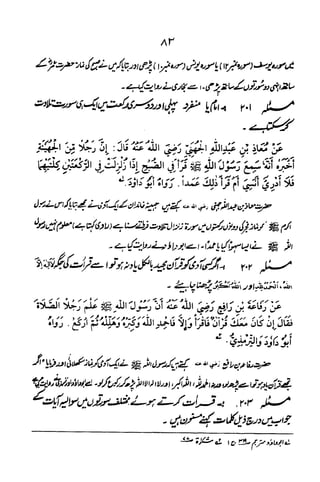 ۸۲
میں سورہ یوسف (سورہ نمبر۱۲) یا سورہ یونس (سورہ نمبر۱۰) پڑھی اور بتایا کہ میں نے صبح کی نماز حضرت عمرؓ کے
ساتھ انہی دو سورتوں کے ساتھ پڑھی۔ اسے بخاری نے روایت کیا ہے۔
مسئلہ ۲۰۱ امام یا منفرد پہلی اور دوسری رکعت میں ایک ہی سورت تلاوت
کر سکتا ہے۔
عَنْ مُعَاذِ بْنِ عَبْدِاللهِ الْجُهَنِيِّ رَضِيَ اللهُ عَنْهُ قَالَ: إِنَّ رَجُلًا مِنَ الْجُهَيْنَةِ
أَخْبَرَهُ أَنَّهُ سَمِعَ رَسُولَ اللهِ ﷺ قَرَأَ فِي الصُّبْحِ إِذَا زُلْزِلَتْ فِي الرَّكْعَتَيْنِ كِلْتَيْهِمَا
فَلَا أَدْرِي أَنَسِيَ أَمْ قَرَأَ ذَلِكَ عَمْدًا. رَوَاهُ أَبُو دَاوُدَ.
حضرت معاذ بن عبداللہ جہنی رضی اللہ عنہ کہتے ہیں جہینہ خاندان کے ایک آدمی نے مجھے بتایا کہ اس نے رسول
اکرم ﷺ کو نماز فجر کی دونوں رکعتوں میں سورہ زلزال تلاوت فرماتے سنا ہے (راوی کہتا ہے) معلوم نہیں رسول
اللہ ﷺ نے ایسا سہواً کیا یا عمداً۔ اسے ابوداؤد نے روایت کیا ہے۔
مسئلہ ۲۰۲ اگر کسی آدمی کو قرآن مجید بالکل یاد نہ ہو تو اسے قرأت کی جگہ لَا إِلٰهَ إِلَّا
اللهُ، اَلْحَمْدُلِلّٰهِ اور اَللهُ اَكْبَرُ پڑھنا چاہئے۔
عَنْ رِفَاعَةَ بْنِ رَافِعٍ رَضِيَ اللهُ عَنْهُ أَنَّ رَسُولَ اللهِ ﷺ عَلَّمَ رَجُلًا الصَّلَاةَ
فَقَالَ إِنْ كَانَ مَعَكَ قُرْآنٌ فَاقْرَأْ وَإِلَّا فَاحْمِدِ اللهَ وَكَبِّرْهُ وَهَلِّلْهُ ثُمَّ ارْكَعْ. رَوَاهُ
أَبُو دَاوُدَ وَالتِّرْمِذِيُّ.
حضرت رفاعہ بن رافع رضی اللہ عنہ کہتے ہیں کہ رسول اللہ ﷺ نے ایک آدمی کو نماز سکھلائی اور فرمایا اگر
تجھے قرآن یاد ہو تو اسے پڑھو ورنہ الحمدللہ، اللہ اکبر، اور لا الہ الا اللہ پڑھ کر رکوع کر لو۔ اسے ابوداؤد اور ترمذی نے روایت کیا ہے۔
مسئلہ ۲۰۳ قرأت کرتے ہوئے مختلف سورتوں میں سوالیہ آیات کے
جواب میں درج ذیل کلمات کہنے مسنون ہیں۔